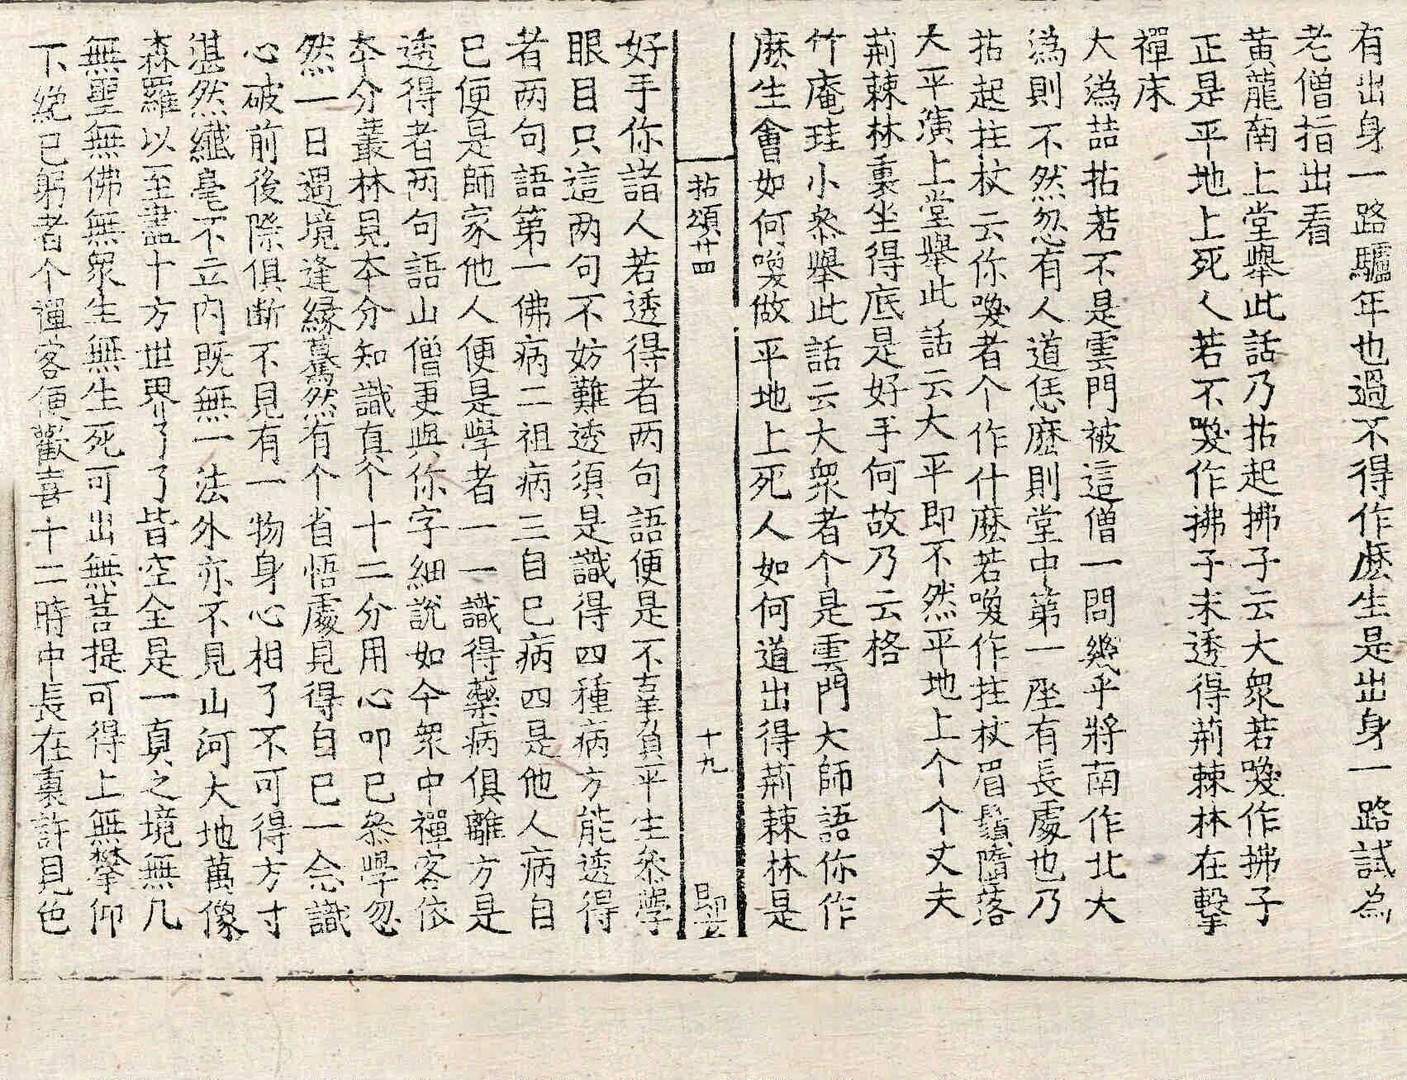 有出身一路驢年也過不得作麽生是出身一路試為
老僧指出看
黃龍南上堂舉此話乃拈起拂子云大衆若喚作拂子
正是平地上死人若不喚作拂子未透得荊棘林在擊
禪床
大潙喆拈若不是雲門被這僧一問幾乎將南作北大
潙則不然忽有人道恁麽則堂中第一座有長處也乃
拈起拄杖云你喚者个作什麽若喚作拄杖眉鬚墮落
大平演上堂舉此話云大平即不然平地上个个丈夫
荊棘林裏坐得底是好手何故乃云格
竹庵珪小叅舉此話云大衆者个是雲門大師語你作
麽生會如何喚做平地上死人如何道出得荊棘林是
拈頌廿四 十九
好手你諸人若透得者两句語便是不辜負平生叅學
眼目只這两句不妨難透須是識得四種病方能透得
者两句語第一佛病二祖病三自已病四是他人病自
已便是師家他人便是學者一一識得藥病俱離方是
透得者两句語山僧更與你字細說如今衆中禪客依
夲分叢林見夲分知識真个十二分用心叩已叅學忽
然一日遇境逢緣驀然有个省悟處見得自已一念識
心破前後際俱断不見有一物身心相了不可得方寸
湛然纖毫不立内既無一法外亦不見山河大地萬像
森羅以至盡十方世界了了皆空全是一真之境無凡
無聖無佛無衆生無生死可出無菩提可得上無攀仰
下絶已躬者个禪客便歡喜十二時中長在裏許見色